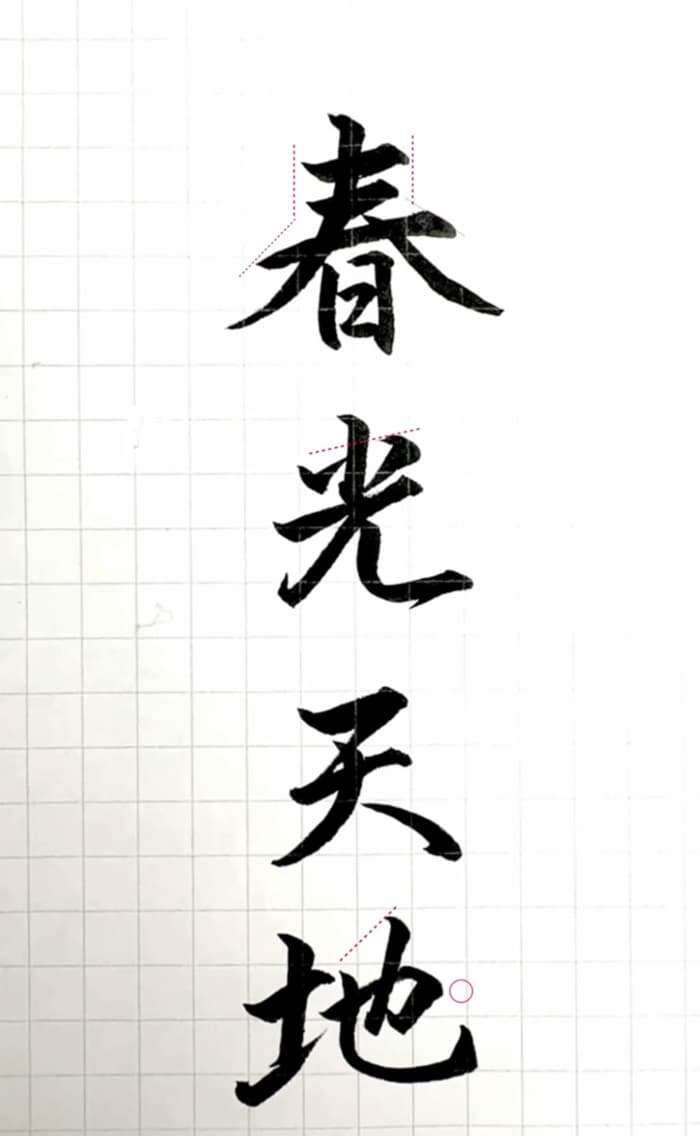 春光天地